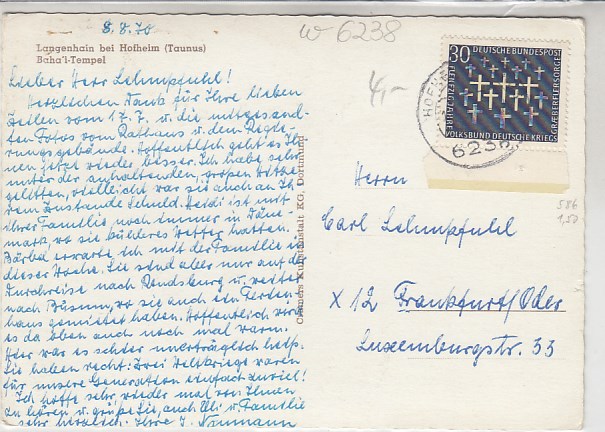 8.8.70
W 6238
Langenhain bei Hofheim (Taunus)
Baha'i-Tempel
4,-
Lieber Herr Lehmpfuhl!
Herzlichen Dank für Ihre lieben
Zeilen vom 17.7. u. die mitgesand-
ten Fotos vom Rathaus u. dem Regie-
rungsgebäude. Hoffentlich geht es Ih-
nen jetzt wieder besser. Ich habe sehr
unter der anhaltenden, großen Hitze
gelitten, vielleicht war sie auch an Ih-
rem Zustande Schuld. Heidi ist mit
ihrer Familie noch immer in Däne-
mark, wo sie kühleres Wetter hatten.
Bärbel erwarte ich mit der Familie in
dieser Woche. Sie sind aber nur auf der
Durchreise nach Rendsburg u. weiter
nach Büsum, wo sie auch ein Ferien-
haus gemietet haben. Hoffentlich wird
es da oben auch noch mal warm.
Hier war es schier unerträglich heiß.
Sie haben recht: Zwei Weltkriege waren
für unsere Generation einfach zuviel!
Ich hoffe sehr, wieder mal von Ihnen
zu hören u. grüße Sie, auch Uli u. Familie
sehr herzlich. Ihre J. Neumann
Cramers Kunstanstalt KG, Dortmund
30 DEUTSCHE BUNDESPOST
FÜNFZIG JAHRE
VOLKSBUND DEUTSCHE KRIEGSGRÄBERFÜRSORGE
HOFHEIM
6238
586
1,50
Herrn
Carl Lehmpfuhl
X 12 Frankfurt/Oder
Luxemburgstr. 33